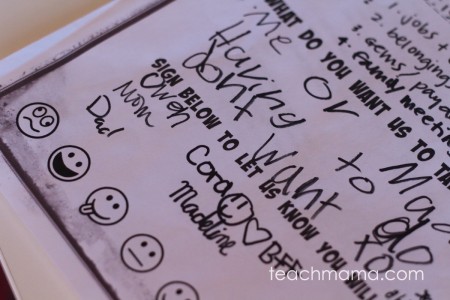 1. jobs +
2. belonging
3. Gems/
4. Family meeting
WHAT DO YOU WANT US TO
Me or
Having to
dont want to
go
SIGN BELOW TO LET US KNOW YOU WILL
Owen
Mom
Dad
Cora
Madeline
teachmama.com